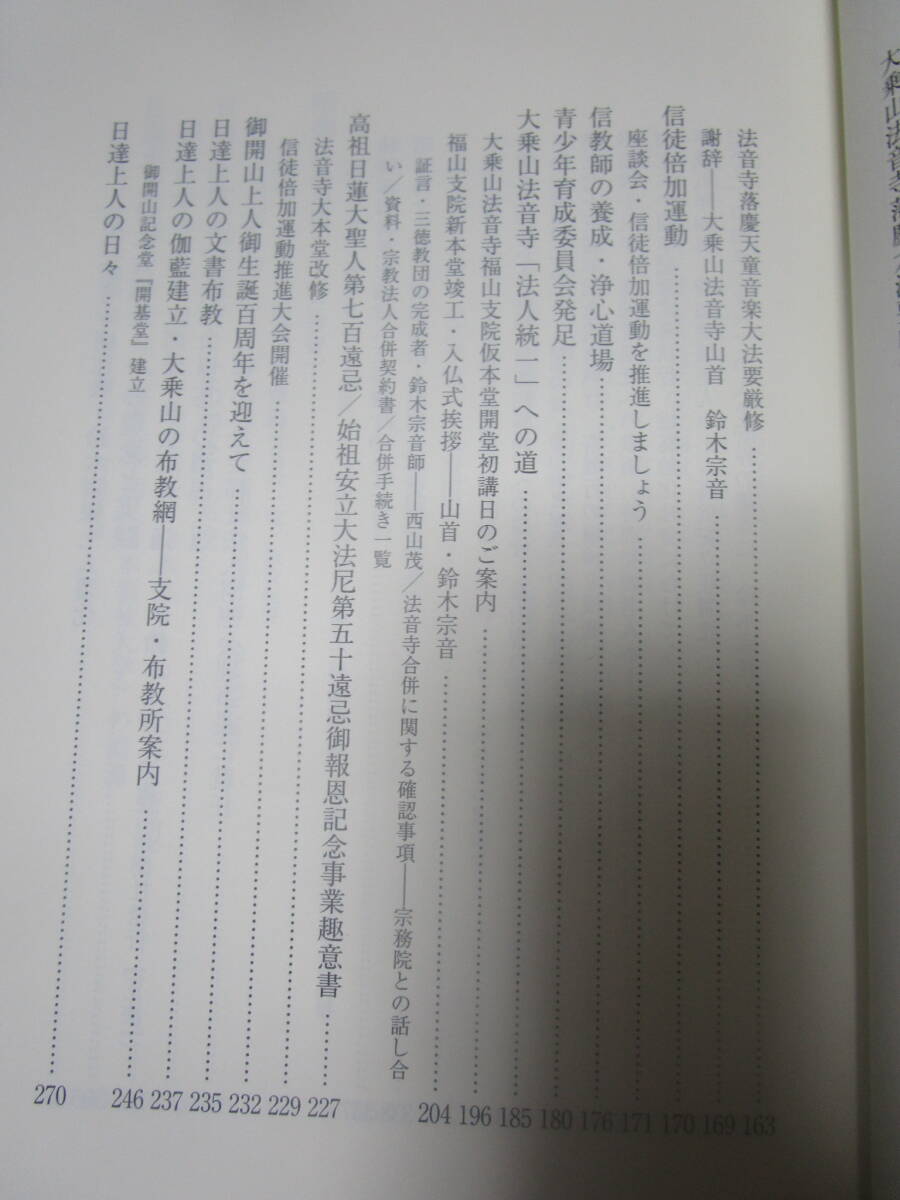 大乗山法音寺落慶
法音寺落慶天童音楽大法要厳修……163
謝辞――大乗山法音寺山首　鈴木宗音……169
信徒倍加運動……170
座談会・信徒倍加運動を推進しましょう……171
信教師の養成・浄心道場……176
青少年育成委員会発足……180
大乗山法音寺「法人統一」への道……185
大乗山法音寺福山支院仮本堂開堂初講日のご案内……196
福山支院新本堂竣工・入仏式挨拶――山首・鈴木宗音……204
証言・三徳教団の完成者・鈴木宗音師――西山茂／法音寺合併に関する確認事項――宗務院との話し合
い／資料・宗教法人合併契約書／合併手続き一覧
高祖日蓮大聖人第七百遠忌／始祖安立大法尼第五十遠忌御報恩記念事業趣意書……227
法音寺大本堂改修……229
信徒倍加運動推進大会開催……232
御開山上人御生誕百周年を迎えて……235
日達上人の文書布教……237
日達上人の伽藍建立・大乗山の布教網――支院・布教所案内……246
御開山記念堂『開基堂』建立
日達上人の日々……270